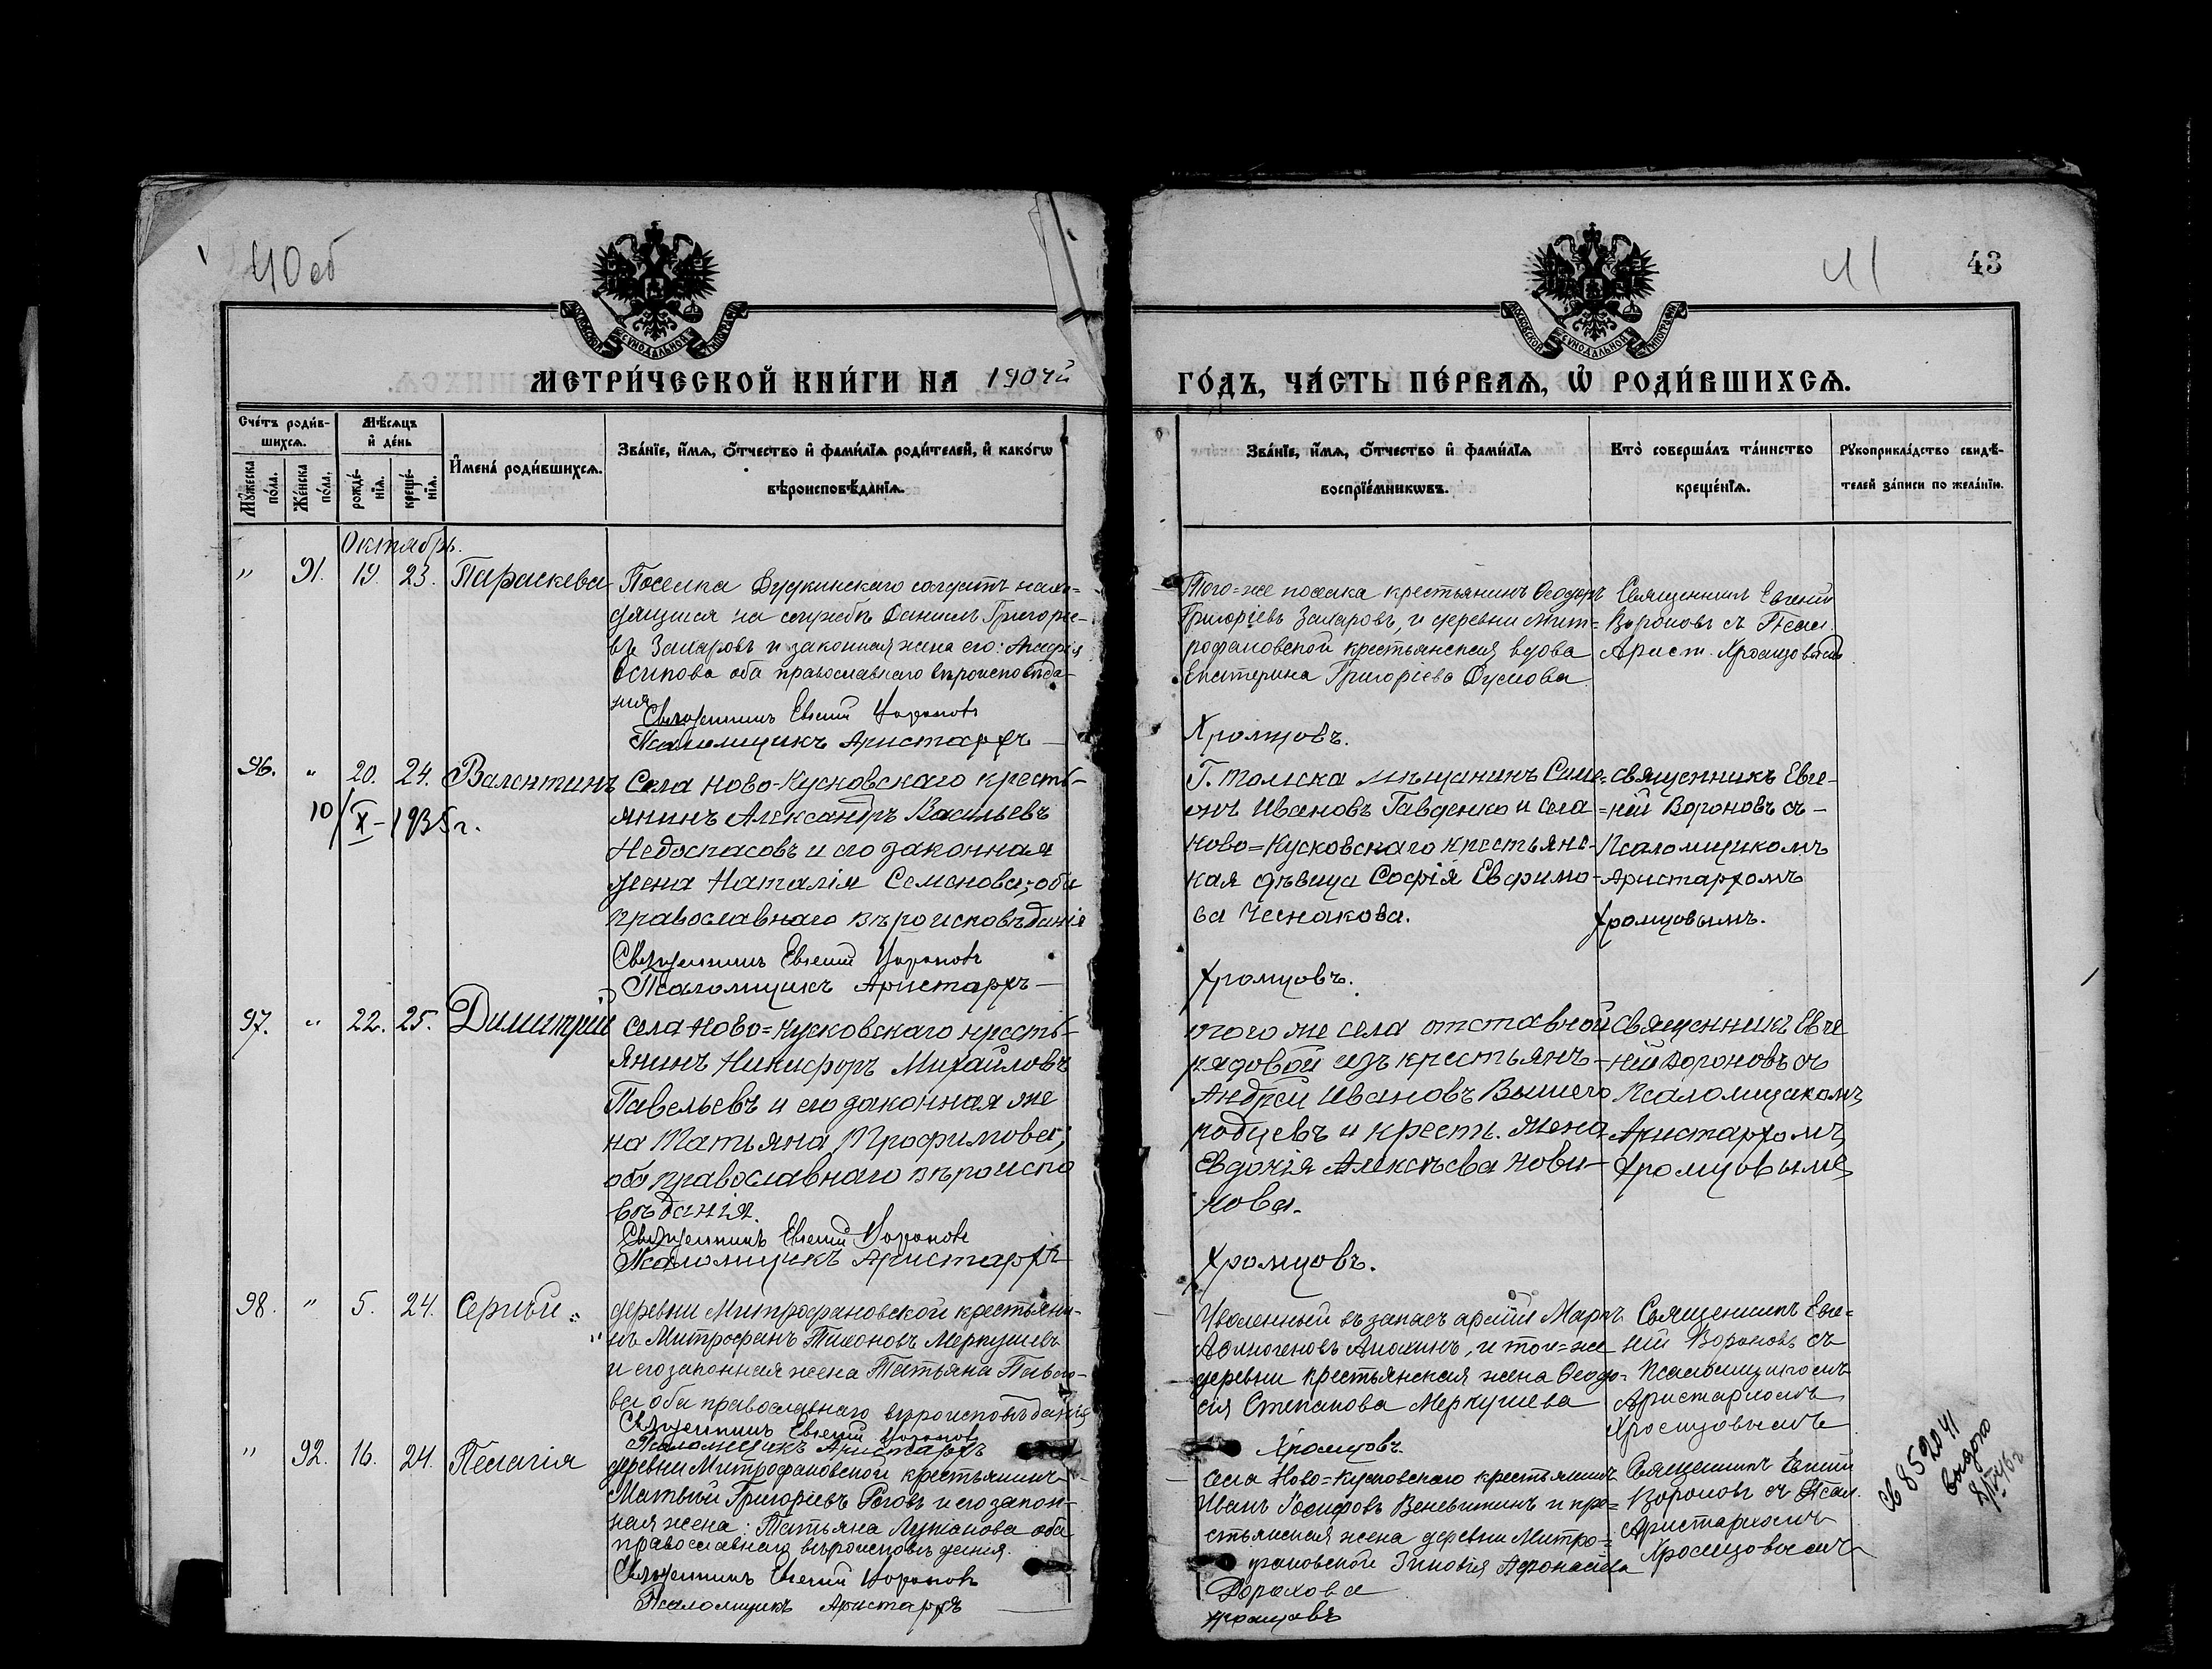 40 об
41
43
МОСКОВСКОЙ СѴНОДАЛЬНОЙ ТИПОГРАФІИ
МОСКОВСКОЙ СѴНОДАЛЬНОЙ ТИПОГРАФІИ
МЕТРИ́ЧЕСКОЙ КНИ́ГИ НА 1904й
ГО́ДЪ, ЧА́СТЬ ПЕ́РВАѦ, Ѽ РОДИ́ВШИХСѦ.
Сче́тъ роди́в-
шихсѧ.
Мꙋ́жеска
по́ла.
Же́нска
по́ла.
Мѣ́сѧцъ
и҆ де́нь
рожде́-
нїѧ.
креще́-
нїѧ.
И҆мена̀ роди́вшихсѧ.
Зва́нїе, и҆́мѧ, ѻ҆́тчество и҆ фами́лїѧ роди́телей, и҆ како́гѡ
вѣроисповѣ́данїѧ.
Зва́нїе, и҆́мѧ, ѻ҆́тчество и҆ фами́лїѧ
воспрїе́мникѡвъ.
Кто̀ соверша́лъ та́инство
креще́нїѧ.
Рꙋкоприкла́дство свидѣ́-
телей за́писи по жела́нїю.
Октябрь.
" 91. 19. 23. Параскева
Поселка Дудкинскаго солдатъ нахо=
дящися на службѣ Даніилъ Григорье-
въ Захаровъ и законная жена его: Агафія
Осипова оба православнаго вѣроисповѣда-
нія
Священникъ Евгений Вороновъ
Псаломщикъ Аристархъ —
Того=же поселка крестьянинъ Ѳеодоръ
Григоріевъ Захаровъ, и деревни Мит=
рофановской крестьянская вдова
Екатерина Григоріева
Хромцовъ.
Священникъ Евгеній
Вороновъ съ Псал.
Арист. Хромцовымъ
96. " 20. 24. Валентинъ
10/X-1935г.
Села Ново-Кусковскаго кресть-
янинъ Александръ Васильевъ
Недоспасовъ и его законная
жена Наталія Семенова; оба
православнаго вѣроисповѣданія
Священникъ Евгений Вороновъ
Псаломщикъ Аристархъ —
Г. Томска мѣщанинъ Симе=
онъ Ивановъ Гавденко и села
Ново=Кусковскаго крестьянс-
кая дѣвица Софія Евфимо-
ва Чеснакова.
Хромцовъ.
священникъ Евге-
=ній Вороновъ съ -
Псаломщикомъ
Аристархомъ
Хромцовымъ.
97. " 22. 25. Димитрій
села Ново=Кусковскаго кресть-
янинъ Никифоръ Михайловъ
Павельевъ и его законная же
на Татьяна Трофимова;
оба православнаго вѣроиспо
вѣданія.
Священникъ Евгений Вороновъ
Псаломщикъ Аристархъ
того же села отставной
рядовой изъ крестьянъ-
Андрей Ивановъ Вышего
родцевъ и крест. жена
Евдокія Алексѣева Нови-
кова.
Хромцовъ.
Священникъ Евге
ній Вороновъ съ
Псаломщикомъ
Аристархомъ
Хромцовымъ
98. " 5. 24. Сергѣй
деревни Митрофановской крестьяни-
нъ Митрофанъ Тихоновъ Меркушевъ
и его законная жена Татьяна Павло-
ва оба православнаго вѣроисповѣданія
Священникъ Евгений Вороновъ
Псаломщикъ Аристархъ
Уволенный въ запасъ арміи Маркъ
Аѳиногеновъ Анохинъ, и той=же
деревни крестьянская жена Ѳеодо=
сія Степанова Меркушева
Хромцовъ.
Священникъ Евге=
ній Вороновъ съ
Псаломщикомъ
Аристархомъ
Хромцовымъ
" 92. 16. 24. Пелагія
деревни Митрофановской крестьянинъ-
Матвѣй Григоріевъ Роговъ и его закон-
ная жена: Татьяна Лукіанова оба
православнаго вѣроисповѣданія.
Священникъ Евгений Вороновъ
Псаломщикъ Аристархъ
Села Ново=Кусковскаго крестьянинъ
Иванъ Іосифовъ Веневитинъ и кре=
стьянская жена деревни Митро=
фановской Зиновія Афонасіева
Дорохова
Хромцовъ
Священникъ Евгеній
Вороновъ съ Псал.
Аристархомъ
Хромцовымъ
Св 852041
выдано